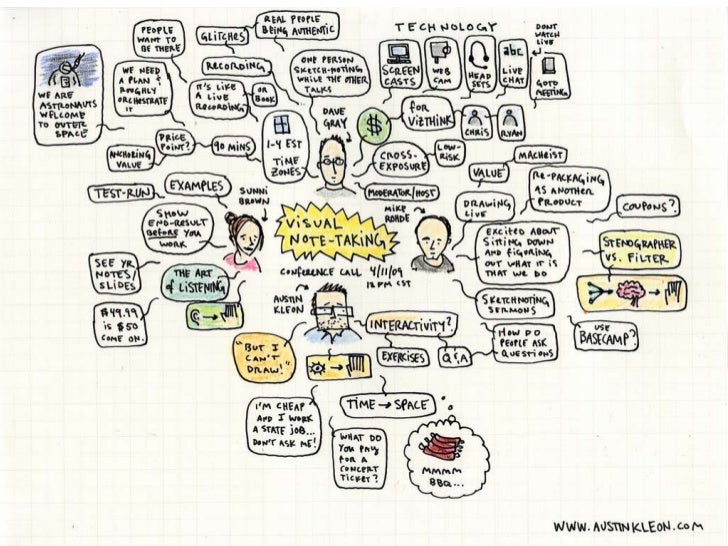 REAL PEOPLE
BEING AUTHENTIC
PEOPLE
WANT TO
BE THERE
GLITCHES
TECHNOLOGY
DONT
WATCH
LIVE
SCREEN
CASTS
WEB
CAM
HEAD
SETS
abc
LIVE
CHAT
GOTO
MEETING
WE ARE
ASTRONAUTS
WELCOME
TO OUTER
SPACE
WE NEED
A PLAN &
ROUGHLY
ORCHESTRATE
IT
RECORDING
IT'S LIKE
A LIVE
RECORDING
OR
BOOK
ONE PERSON
SKETCH-NOTING
WHILE THE OTHER
TALKS
DAVE
GRAY
$
for
VIZTHINK
CHRIS
RYAN
ANCHORING
VALUE
PRICE
POINT?
90 MINS
1-4 EST
TIME
ZONES
CROSS-
EXPOSURE
LOW-
RISK
MODERATOR/HOST
VALUE
MACHEIST
RE-PACKAGING
AS ANOTHER
PRODUCT
COUPONS?
DRAWING
LIVE
TEST-RUN
EXAMPLES
SUNNI
BROWN
MIKE
ROHDE
SHOW
END-RESULT
BEFORE YOU
WORK
VISUAL
NOTE-TAKING
CONFERENCE CALL 4/11/09
12 PM CST
EXCITED ABOUT
SITTING DOWN
AND FIGURING
OUT WHAT IT IS
THAT WE DO
STENOGRAPHER
VS. FILTER
SEE YR
NOTES/
SLIDES
THE ART
of LISTENING
$49.99
IS $50
COME ON.
AUSTIN
KLEON
SKETCHNOTING
SERMONS
USE
BASECAMP?
INTERACTIVITY?
EXERCISES
Q&A
HOW DO
PEOPLE ASK
QUESTIONS
"BUT I
CAN'T
DRAW!"
I'M CHEAP
AND I WORK
A STATE JOB...
DON'T ASK ME!
TIME → SPACE
WHAT DO
YOU PAY
FOR A
CONCERT
TICKET?
MMMM
BBQ...
WWW.AUSTINKLEON.COM